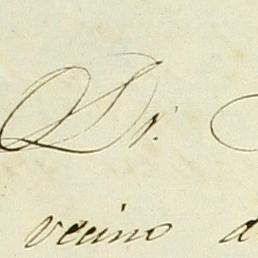 Dr.
vecino d